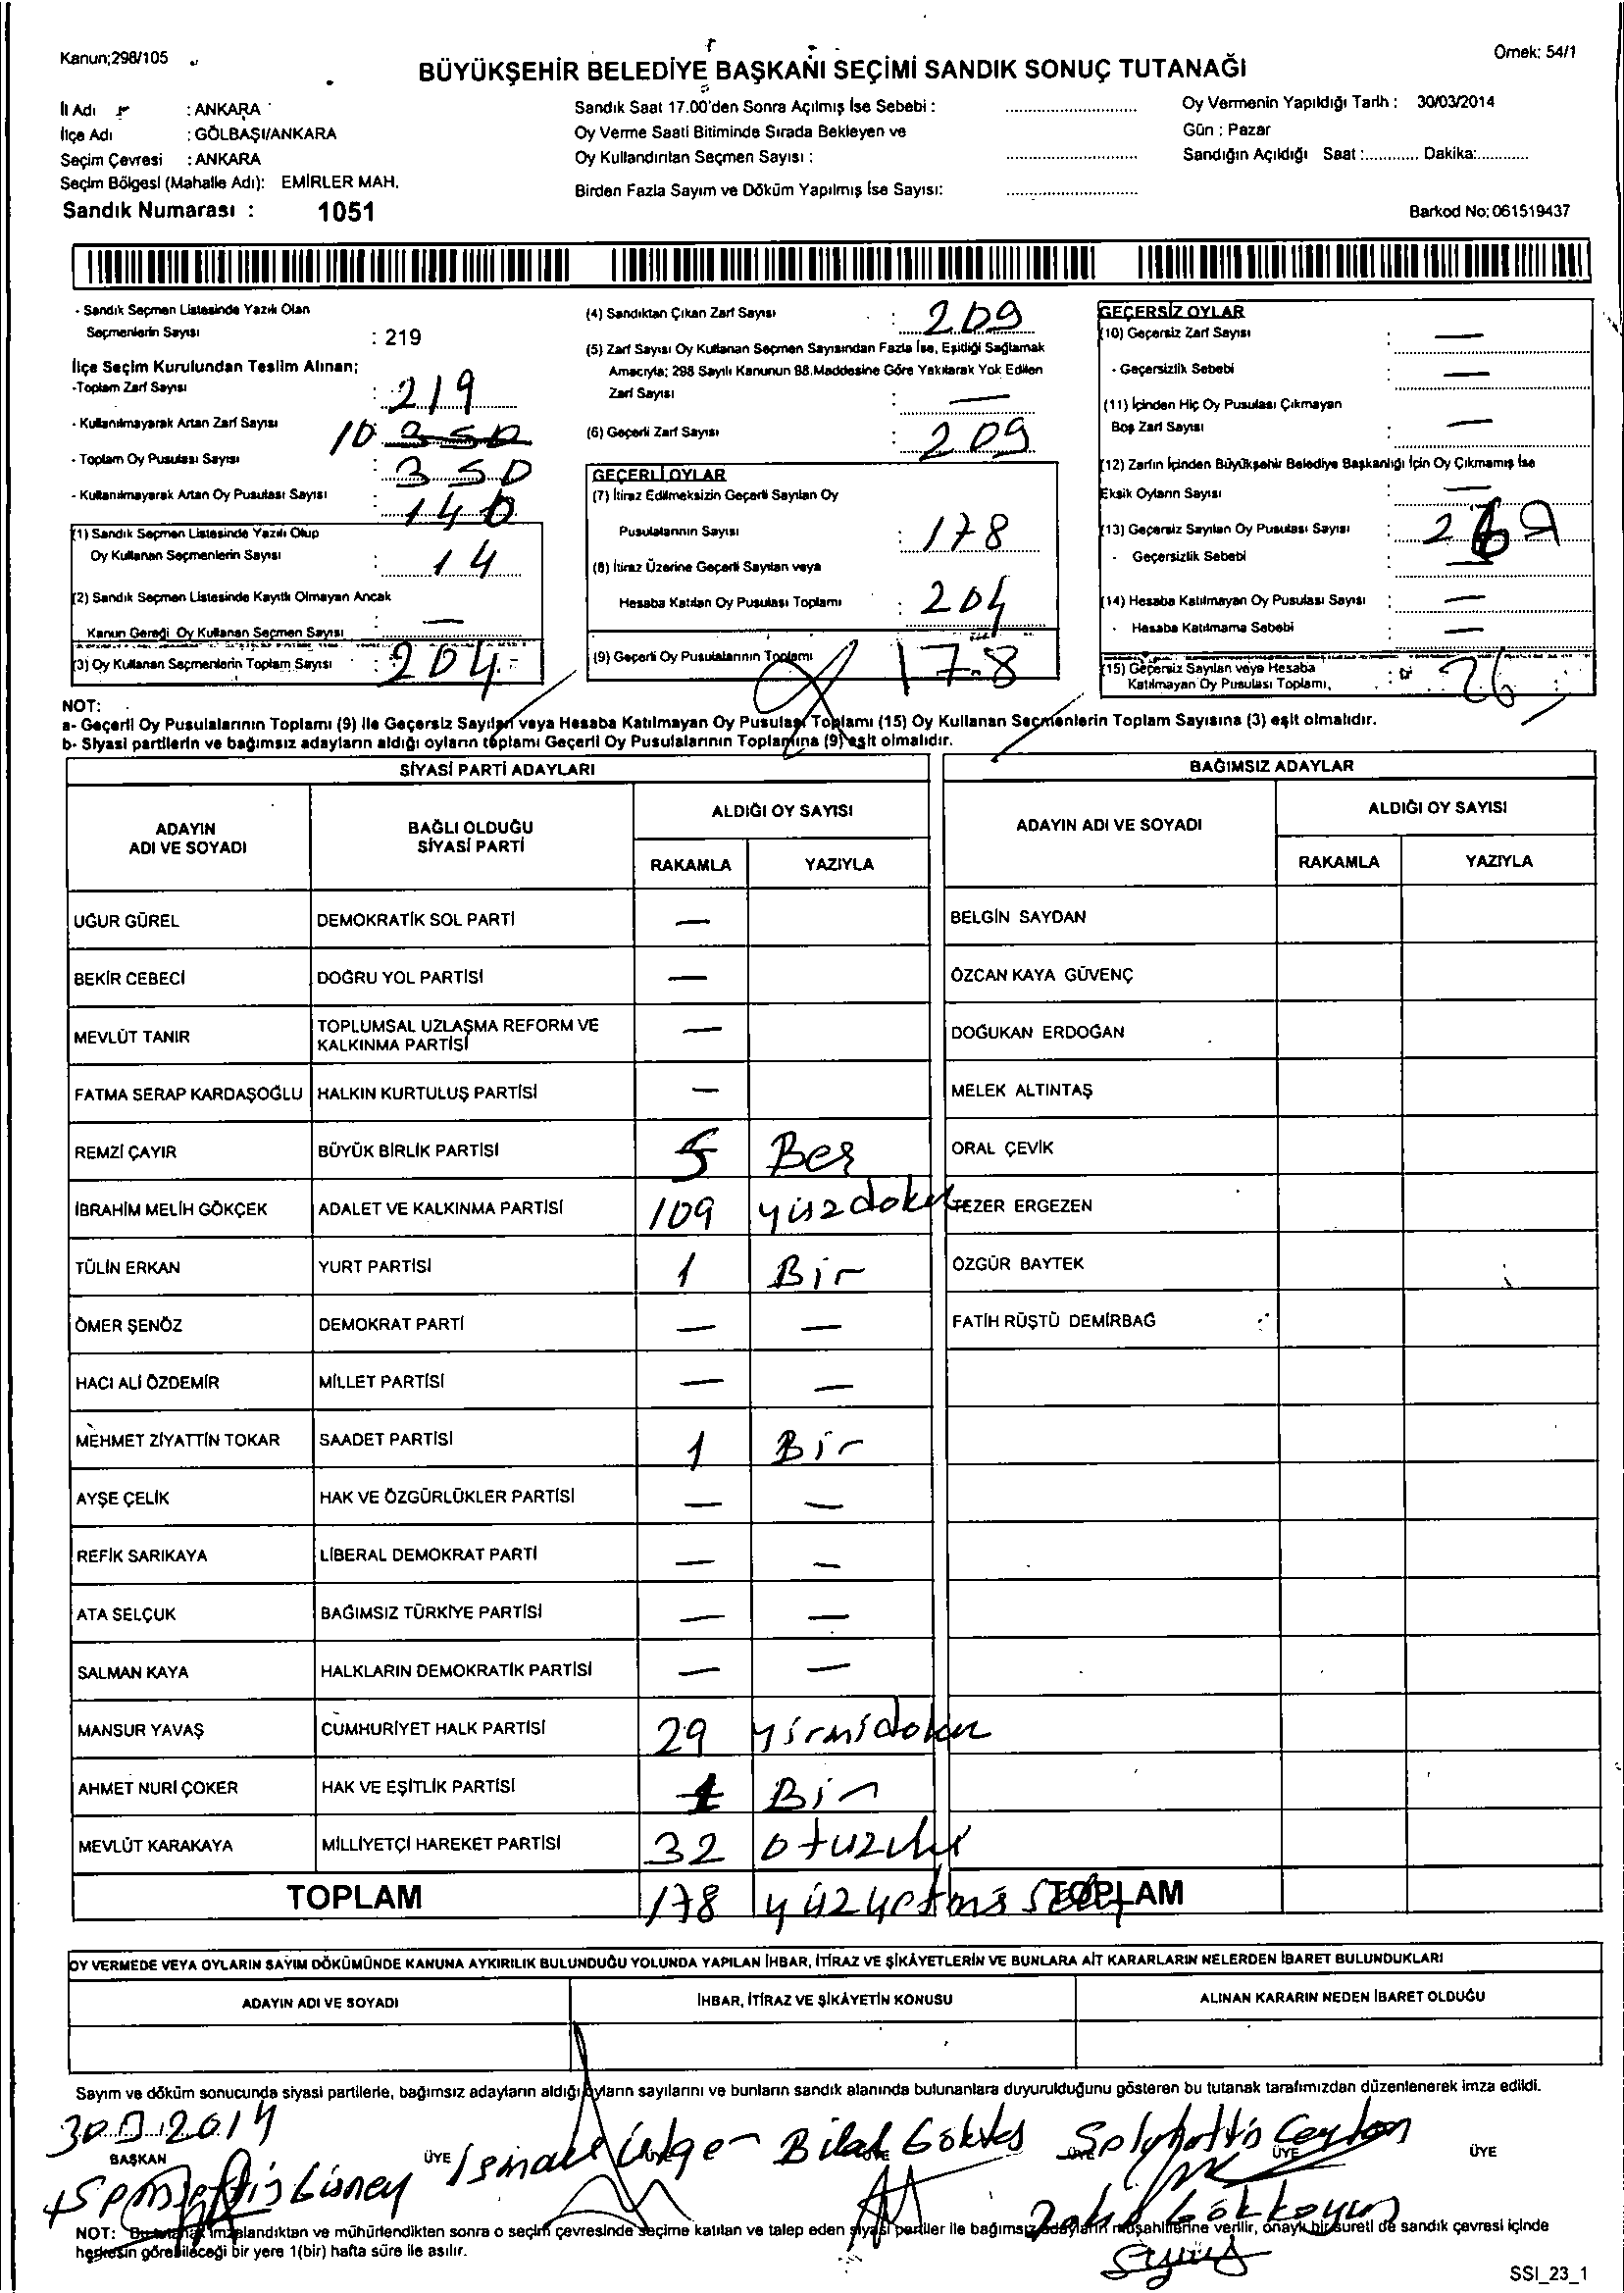 Kanun;298/105
Örnek: 54/1
BÜYÜKŞEHİR BELEDİYE BAŞKANI SEÇİMİ SANDIK SONUÇ TUTANAĞI
İl Adı : ANKARA
İlçe Adı : GÖLBAŞI/ANKARA
Seçim Çevresi : ANKARA
Seçim Bölgesi (Mahalle Adı): EMİRLER MAH.
Sandık Numarası : 1051
Sandık Saat 17.00'den Sonra Açılmış İse Sebebi :
Oy Verme Saati Bitiminde Sırada Bekleyen ve
Oy Kullandırılan Seçmen Sayısı :
Birden Fazla Sayım ve Döküm Yapılmış İse Sayısı:
Oy Vermenin Yapıldığı Tarih : 30/03/2014
Gün : Pazar
Sandığın Açıldığı Saat :............ Dakika:............
Barkod No: 061519437
- Sandık Seçmen Listesinde Yazılı Olan
Seçmenlerin Sayısı : 219
İlçe Seçim Kurulundan Teslim Alınan;
-Toplam Zarf Sayısı : 219
- Kullanılmayarak Artan Zarf Sayısı 10 350
- Toplam Oy Pusulası Sayısı : 350
- Kullanılmayarak Artan Oy Pusulası Sayısı : 140
(1) Sandık Seçmen Listesinde Yazılı Olup
Oy Kullanan Seçmenlerin Sayısı : 14
(2) Sandık Seçmen Listesinde Kayıtlı Olmayan Ancak
Kanun Gereği Oy Kullanan Seçmen Sayısı : —
(3) Oy Kullanan Seçmenlerin Toplam Sayısı : 204
(4) Sandıktan Çıkan Zarf Sayısı : 209
(5) Zarf Sayısı Oy Kullanan Seçmen Sayısından Fazla İse, Eşitliği Sağlamak
Amacıyla; 298 Sayılı Kanunun 98.Maddesine Göre Yakılarak Yok Edilen
Zarf Sayısı : —
(6) Geçerli Zarf Sayısı : 209
GEÇERLİ OYLAR
(7) İtiraz Edilmeksizin Geçerli Sayılan Oy
Pusulalarının Sayısı : 178
(8) İtiraz Üzerine Geçerli Sayılan veya
Hesaba Katılan Oy Pusulası Toplamı : 204
(9) Geçerli Oy Pusulalarının Toplamı 178
GEÇERSİZ OYLAR
(10) Geçersiz Zarf Sayısı : —
- Geçersizlik Sebebi : —
(11) İçinden Hiç Oy Pusulası Çıkmayan
Boş Zarf Sayısı : —
(12) Zarfın İçinden Büyükşehir Belediye Başkanlığı İçin Oy Çıkmamış İse
Eksik Oyların Sayısı : —
(13) Geçersiz Sayılan Oy Pusulası Sayısı :
- Geçersizlik Sebebi : —
(14) Hesaba Katılmayan Oy Pusulası Sayısı : —
- Hesaba Katılmama Sebebi : —
(15) Geçersiz Sayılan veya Hesaba
Katılmayan Oy Pusulası Toplamı, : 26
NOT:
a- Geçerli Oy Pusulalarının Toplamı (9) ile Geçersiz Sayılan veya Hesaba Katılmayan Oy Pusulası Toplamı (15) Oy Kullanan Seçmenlerin Toplam Sayısına (3) eşit olmalıdır.
b- Siyasi partilerin ve bağımsız adayların aldığı oyların toplamı Geçerli Oy Pusulalarının Toplamına (9) eşit olmalıdır.
SİYASİ PARTİ ADAYLARI
ADAYIN ADI VE SOYADI BAĞLI OLDUĞU SİYASİ PARTİ ALDIĞI OY SAYISI
RAKAMLA YAZIYLA
UĞUR GÜREL DEMOKRATİK SOL PARTİ —
BEKİR CEBECİ DOĞRU YOL PARTİSİ —
MEVLÜT TANIR TOPLUMSAL UZLAŞMA REFORM VE KALKINMA PARTİSİ —
FATMA SERAP KARDAŞOĞLU HALKIN KURTULUŞ PARTİSİ —
REMZİ ÇAYIR BÜYÜK BİRLİK PARTİSİ 5 Beş
İBRAHİM MELİH GÖKÇEK ADALET VE KALKINMA PARTİSİ 109 yüzdokuz
TÜLİN ERKAN YURT PARTİSİ 1 Bir
ÖMER ŞENÖZ DEMOKRAT PARTİ — —
HACI ALİ ÖZDEMİR MİLLET PARTİSİ — —
MEHMET ZİYATTİN TOKAR SAADET PARTİSİ 1 Bir
AYŞE ÇELİK HAK VE ÖZGÜRLÜKLER PARTİSİ — —
REFİK SARIKAYA LİBERAL DEMOKRAT PARTİ — —
ATA SELÇUK BAĞIMSIZ TÜRKİYE PARTİSİ — —
SALMAN KAYA HALKLARIN DEMOKRATİK PARTİSİ — —
MANSUR YAVAŞ CUMHURİYET HALK PARTİSİ 29 yirmidokuz
AHMET NURİ ÇOKER HAK VE EŞİTLİK PARTİSİ 1 Bir
MEVLÜT KARAKAYA MİLLİYETÇİ HAREKET PARTİSİ 32 otuziki
TOPLAM 178 yüzyetmiş sekiz
BAĞIMSIZ ADAYLAR
ADAYIN ADI VE SOYADI ALDIĞI OY SAYISI
RAKAMLA YAZIYLA
BELGİN SAYDAN
ÖZCAN KAYA GÜVENÇ
DOĞUKAN ERDOĞAN
MELEK ALTINTAŞ
ORAL ÇEVİK
TEZER ERGEZEN
ÖZGÜR BAYTEK
FATİH RÜŞTÜ DEMİRBAĞ
TOPLAM
OY VERMEDE VEYA OYLARIN SAYIM DÖKÜMÜNDE KANUNA AYKIRILIK BULUNDUĞU YOLUNDA YAPILAN İHBAR, İTİRAZ VE ŞİKÂYETLERİN VE BUNLARA AİT KARARLARIN NELERDEN İBARET BULUNDUKLARI
ADAYIN ADI VE SOYADI İHBAR, İTİRAZ VE ŞİKÂYETİN KONUSU ALINAN KARARIN NEDEN İBARET OLDUĞU
Sayım ve döküm sonucunda siyasi partilerle, bağımsız adayların aldığı oyların sayılarını ve bunların sandık alanında bulunanlara duyurulduğunu gösteren bu tutanak tarafımızdan düzenlenerek imza edildi.
BAŞKAN ÜYE ÜYE ÜYE ÜYE ÜYE ÜYE
Bilal Göktes
NOT: Bu tutanak imzalandıktan ve mühürlendikten sonra o seçim çevresinde seçime katılan ve talep eden siyasi partiler ile bağımsız adayların müşahitlerine verilir, onaylı bir sureti de sandık çevresi içinde
herkesin görebileceği bir yere 1(bir) hafta süre ile asılır.
SSI_23_1